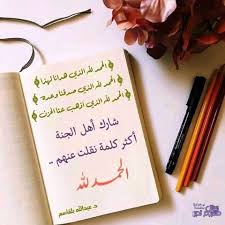 ﴿ الحمد لله الذي هدانا لهذا ﴾
﴿ الحمد لله الذي صدقنا وعده ﴾
﴿ الحمد لله الذي أذهب عنا الحزن ﴾
شارك أهل الجنة
أكثر كلمة نقلت عنهم ..
الحمد لله
د. عبدالله بلقاسم